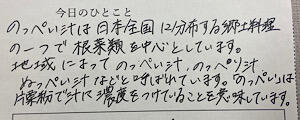 今日のひとこと
のっぺい汁は日本全国に分布する郷土料理
の一つで根菜類を中心としています。
地域によってのっぺい汁、のっぺり汁
ぬっぺい汁などと呼ばれています。のっぺいは
片栗粉で汁に濃度をつけていることを意味しています。